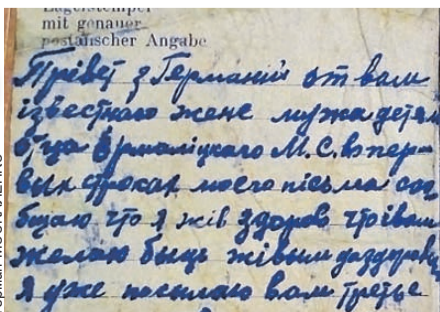 Lagerstempel
mit genauer
postalischer Angabe
Прівет з Германиї от вам
ізвестного жене мужа детям
отца Ермаліцкого М.С. в пер-
вых строках моего пісьма соо
бщаю что я жів здоров что і вам
желаю быць жівым да здоровым
Я уже посылаю вам третье